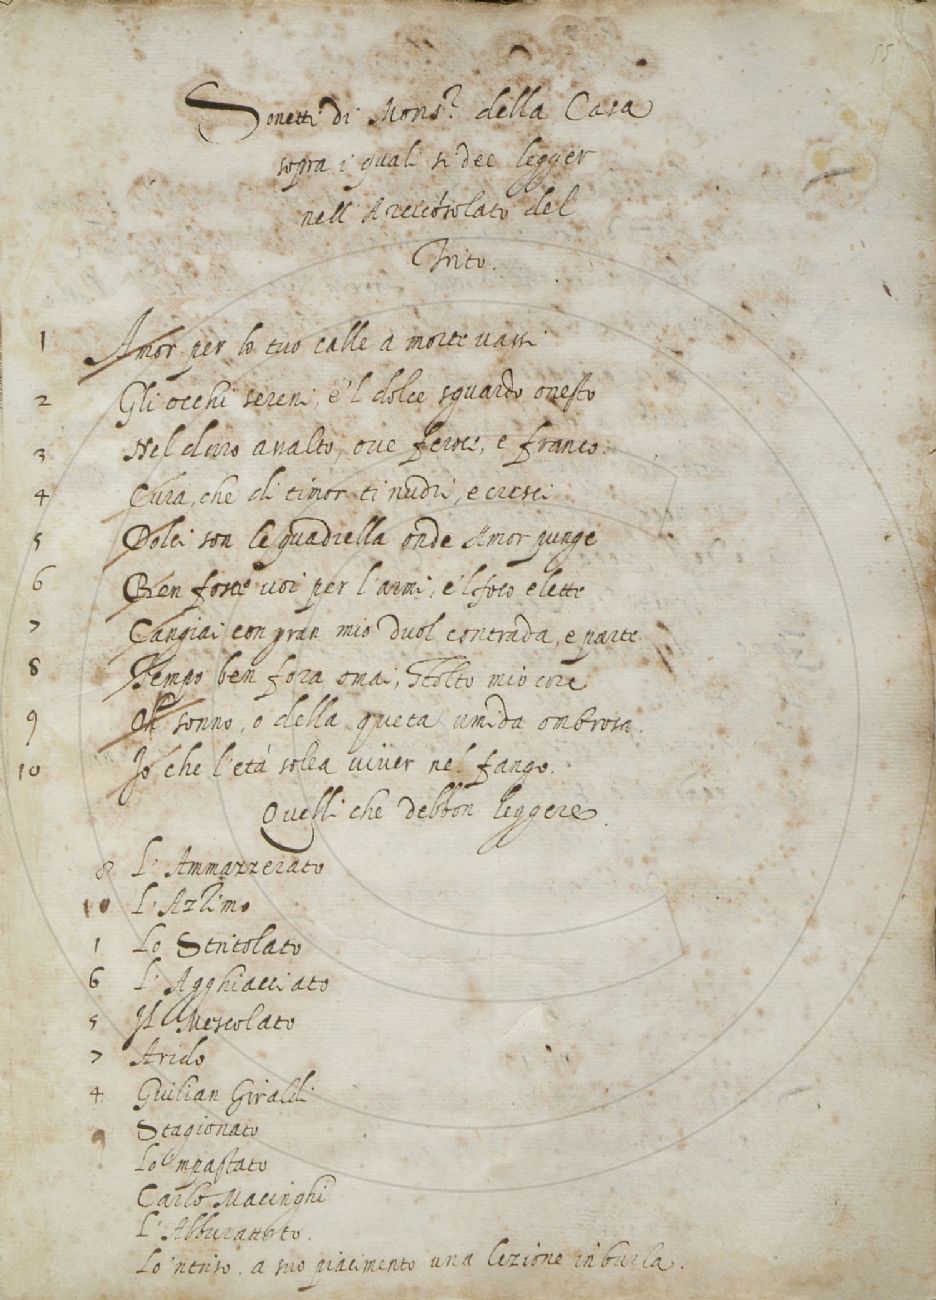 55
Sonetti di Mons.r della Casa
sopra i quali si dee legger
nell' Arciconsolato del
Trito.
1 Amor per lo tuo calle a morte vassi
2 Gli occhi sereni, e'l dolce sguardo onesto
3 Nel duro assalto, ove feroce, e franco.
4 Cura, che di timor ti nudri, e cresci
5 Dolci son le quadrella onde Amor punge
6 Ben foste voi per l'armi, e'l foco elette
7 Cangiai con gran mio duol contrada, e parte
8 Tempo ben fora omai, stolto mio core
9 O sonno, o della queta umida ombrosa.
10 Io che l'età solea viver nel fango.
Quelli che debbon leggere.
8 L'Ammazzerato
10 L'Azzimo
1 Lo Stritolato
6 L'Agghiacciato
5 Il Mescolato
7 Arido
4 Giulian Giraldi
9 Stagionato
Lo 'mpastato
Carlo Macinghi
L'Abburattato.
Lo 'ntriso. a suo piacimento una lezione in burla.